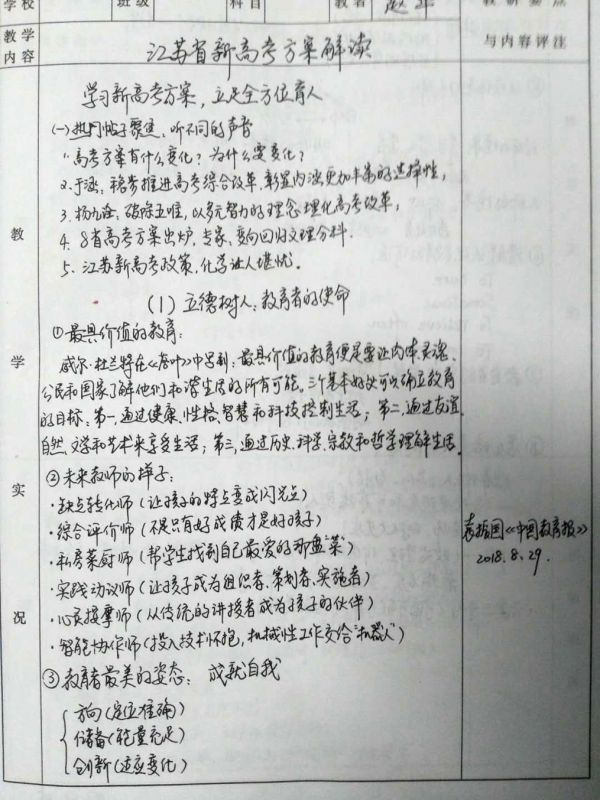 学校 班级 科目 教者 教研要点
教学内容 江苏省新高考方案解读 与内容评注
学习新高考方案，立足全方位育人
(一)热门帖子聚焦，听不同的声音
1.高考方案有什么变化？为什么要变化？
2.于涵：稳步推进高考综合改革，彰显内涵更加丰富的选择性，
3.杨九诠：破除五唯，以多元智力的理念理化高考改革，
4.8省高考方案出炉，专家：变向回归文理分科.
5.江苏新高考政策，化学让人堪忧.
(1)立德树人：教育者的使命
①最具价值的教育：
威尔·杜兰特在《落叶》中写到：最具价值的教育便是要让肉体、灵魂、
公民和国家了解他们和谐生活的所有可能。三个基本好处可以确立教育
的目标：第一，通过健康、性格、智慧和科技控制生活；第二，通过友谊、
自然、文学和艺术来享受生活；第三，通过历史、科学、宗教和哲学理解生活。
②未来教师的样子：
·缺点转化师（让孩子的特点变成闪光点）
·综合评价师（不是只有好成绩才是好孩子）
·私房菜厨师（帮学生找到自己最爱的那盘"菜"）
·实践动议师（让孩子成为组织者、策划者、实施者）
·心灵按摩师（从传统的讲授者成为孩子的伙伴）
·智能协作师（投入技术怀抱，机械性工作交给"机器人"）
③教育者最美的姿态：成就自我
方向（定位准确）
储备（能量充足）
创新（适应变化）
袁振国《中国教育报》
2018.8.29.
教学实况